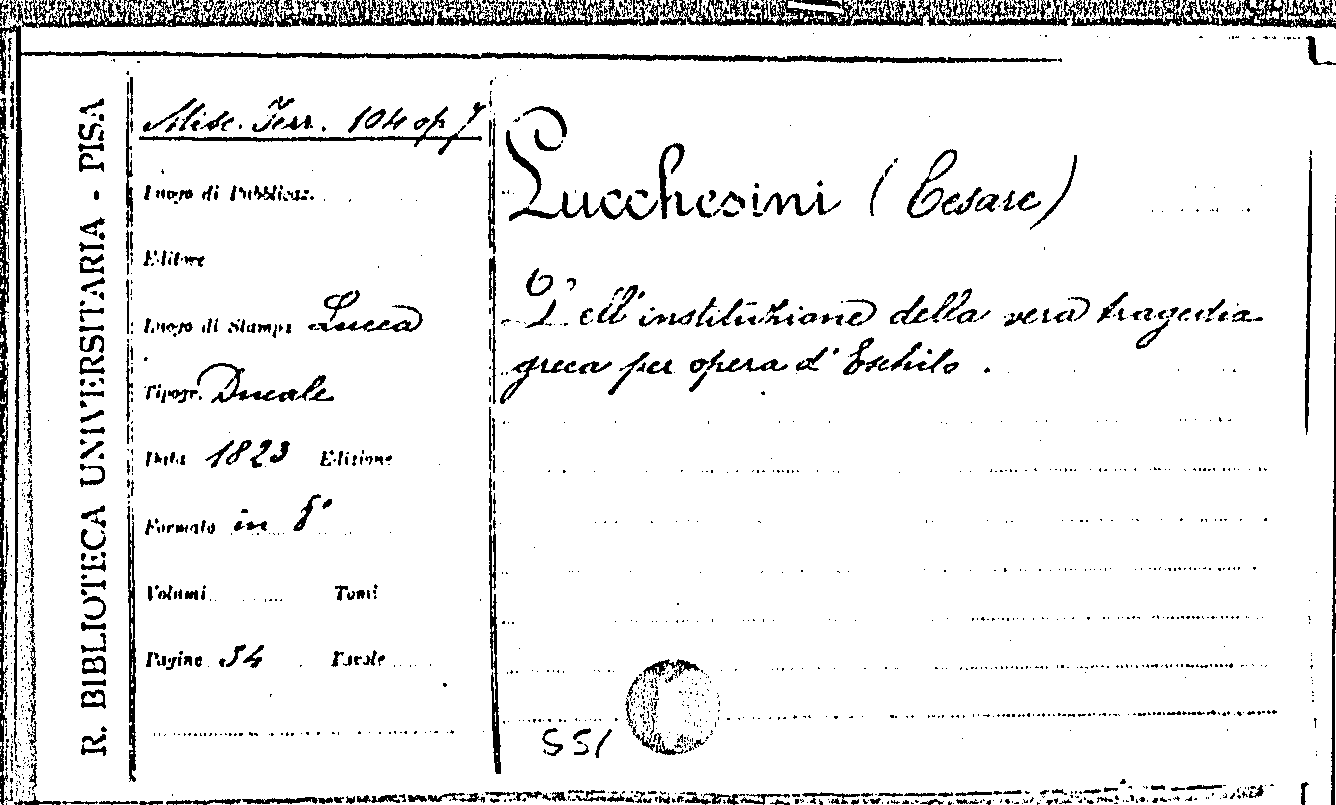 R. BIBLIOTECA UNIVERSITARIA - PISA
Misc. Ferr. 104 op 7
Luogo di Pubblicaz.
Editore
Luogo di Stampa Lucca
Tipogr. Ducale
Data 1823 Edizione
Formato in 8°
Volumi Tomi
Pagine 34 Tavole
Lucchesini (Cesare)
Dell'instituzione della vera tragedia
greca per opera d'Eschilo.
551